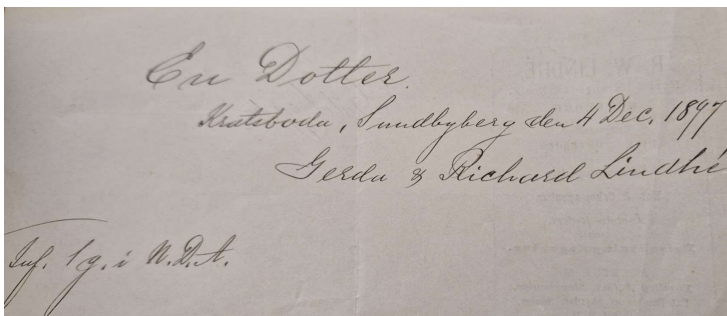 En Dotter.
Kratsboda, Sundbyberg den 4 Dec. 1897
Gerda & Richard Lindhé
Inf. 1 g. i N.D.A.
R. W. LINDHÉ